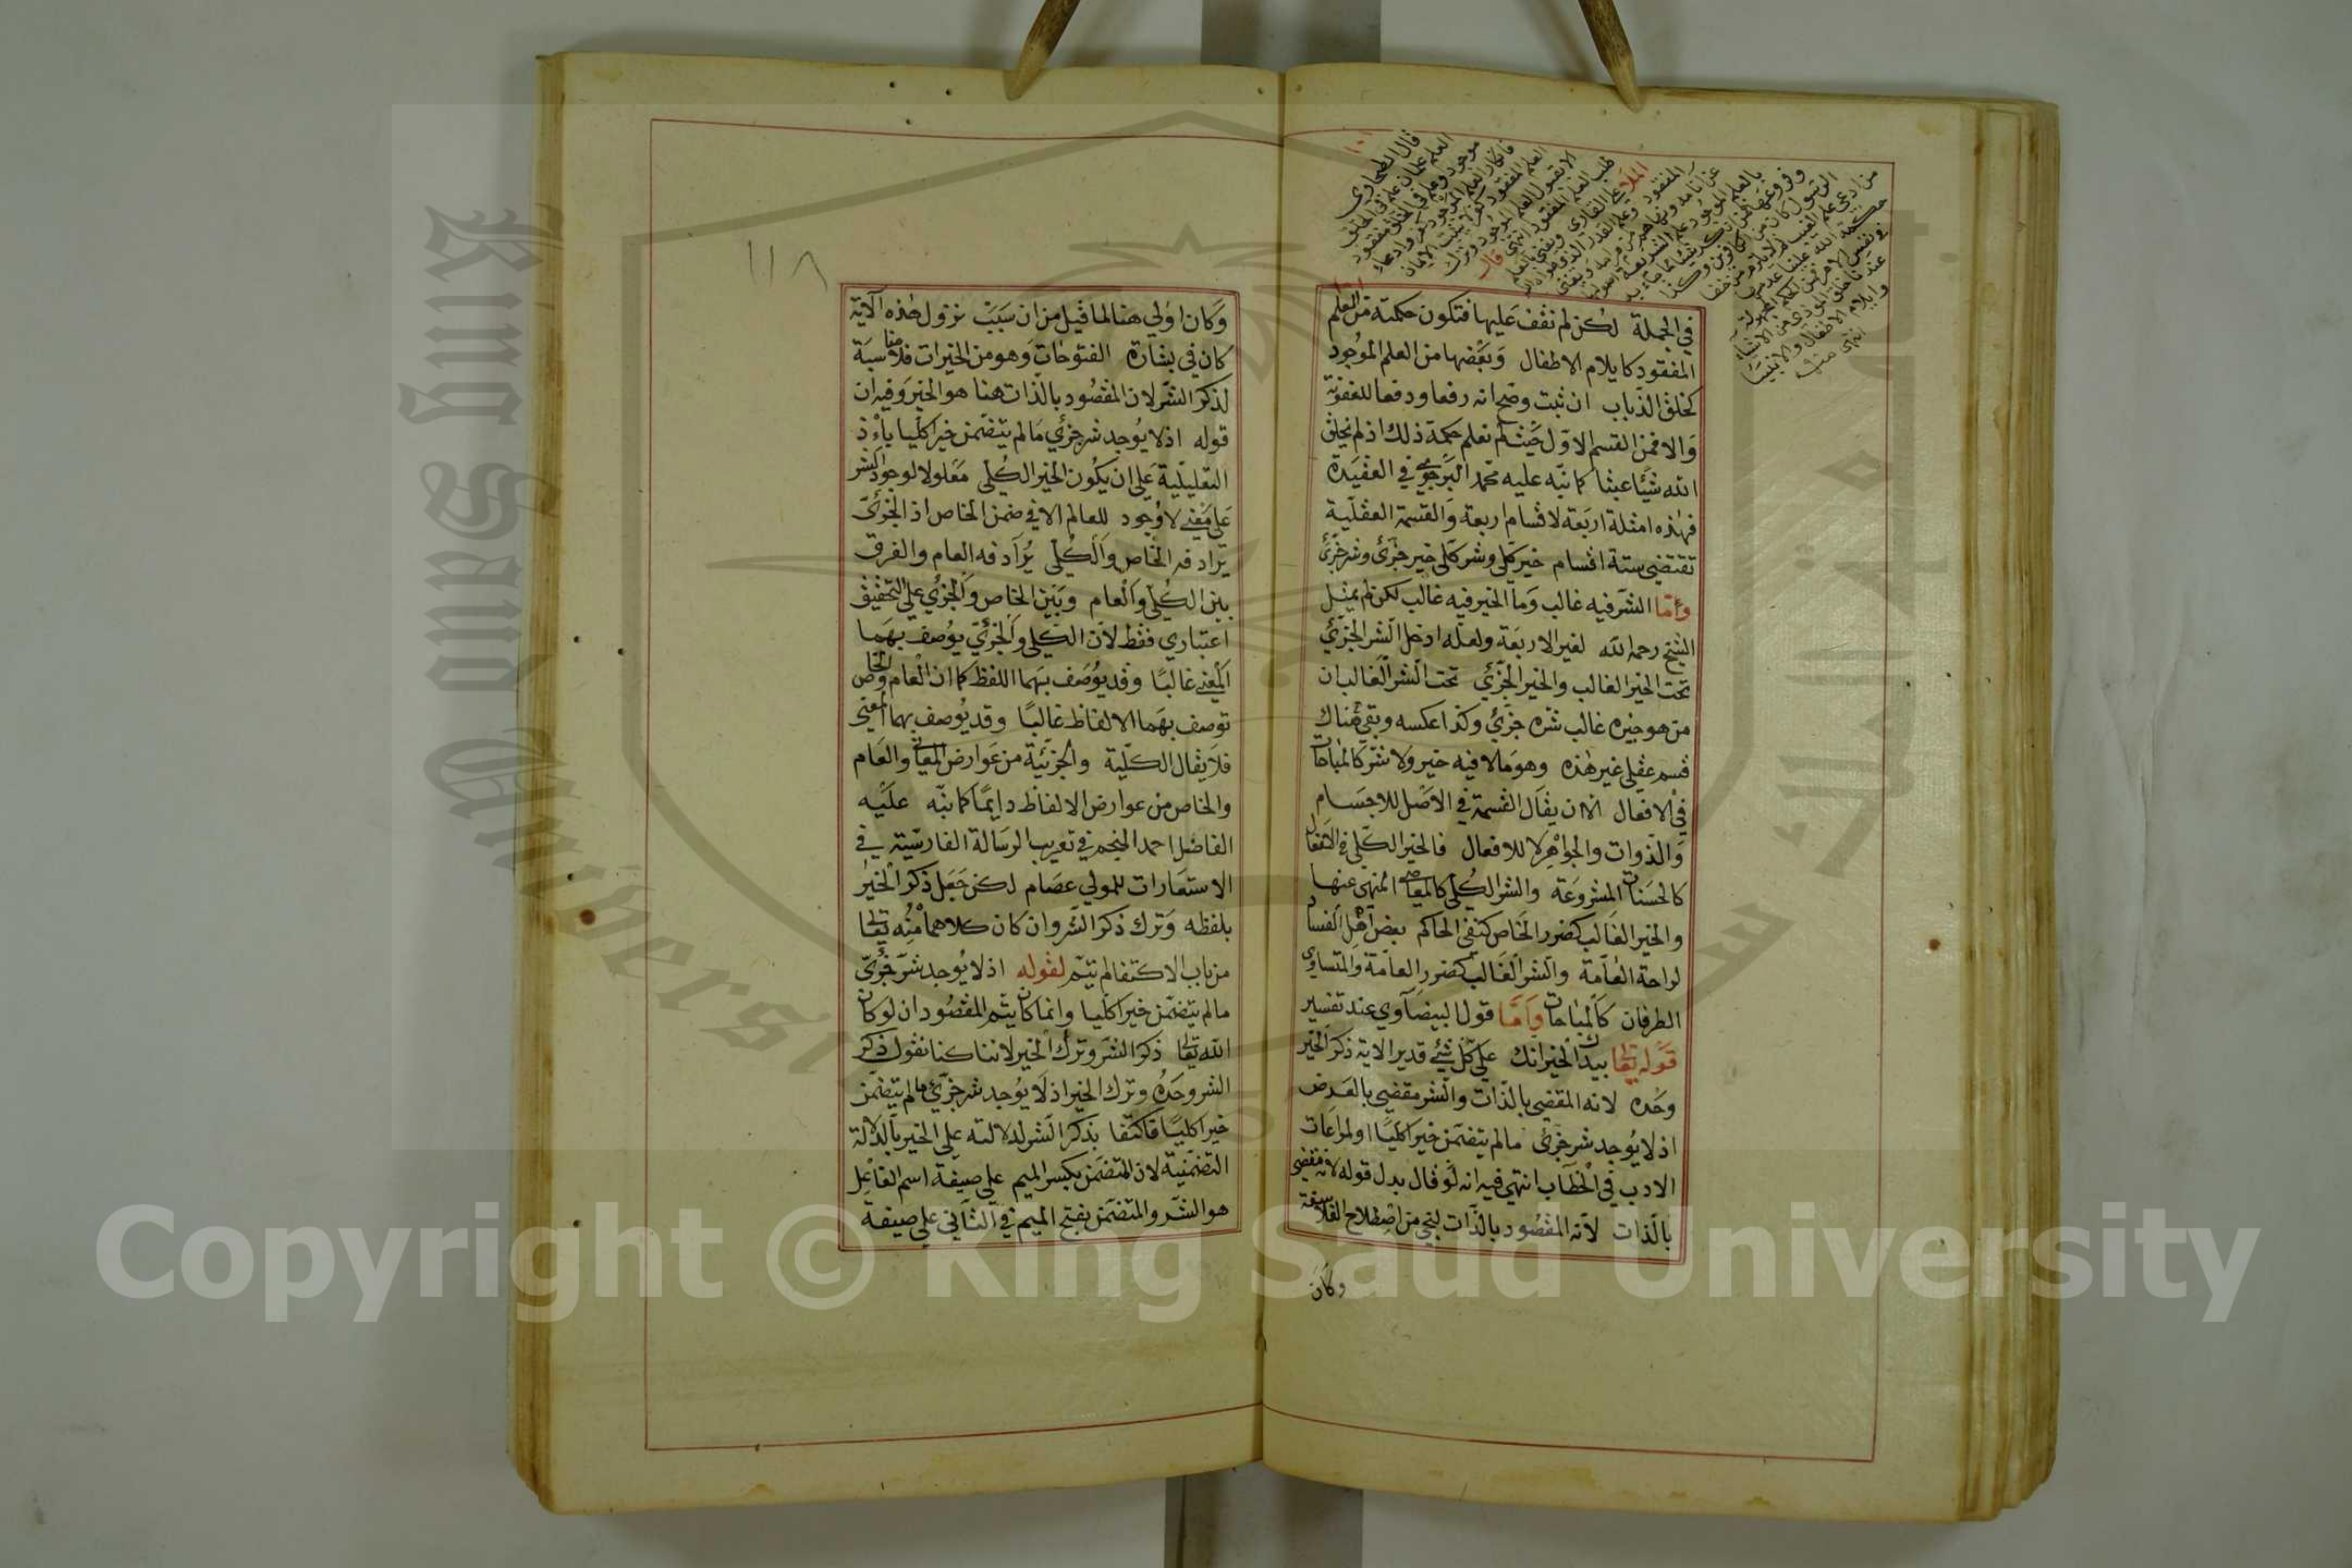 قال الطحاوي
العلم علمان علم في الخلق
موجود وعلم في الخلق مفقود
فانكار العلم الموجود كفر وادعاء
العلم المفقود كفر ولا يثبت الايمان
الا بقبول العلم الموجود وترك
طلب العلم المفقود انتهى قال
الملا علي القاري ويعني بالعلم
المفقود علم القدر الذي طواه الله
عن انامه ونهاهم عن مرامه ويعني
بالعلم الموجود علم الشريعة اصولها
وفروعها فمن انكر شيئا مما جاء به
الرسول كان من الكافرين وكذا
من ادعى علم الغيب ولا يلزم من خفاء
حكمة الله علينا عدمها
في نفس الامر
وايلام الاطفال والانبياء
انتهى منه
في الجملة لكن لم نقف عليها فتكون حكمته من العلم
المفقود كايلام الاطفال وبعضها من العلم الموجود
كخلق الذباب ان ثبت وصح انه رفعا ودفعا للعفونة
والا فمن القسم الاول حيث لم نعلم حكمة ذلك اذ لم يخلق
الله شيئا عبثا كما نبه عليه محمد البركوي في العقيدة
فهذه امثلة اربعة لاقسام اربعة والقسمة العقلية
تقتضي ستة اقسام خير كلي وشر كلي خير جزئي وشر جزئي
وامّا الشر فيه غالب وما الخير فيه غالب لكن لم يمثل
الشيخ رحمه الله لغير الاربعة ولعله ادخل الشر الجزئي
تحت الخير الغالب والخير الجزئي تحت الشر الغالب ان
من هو خيره غالب شره جزئي وكذا عكسه وبقي هناك
قسم عقلي غير هذه وهو ما لا فيه خير ولا شر كالمباحات
في الافعال الا ان يقال القسمة في الاصل للاجسام
والذوات والجواهر لا للافعال فالخير الكلي في الافعال
كالحسنات المشروعة والشر الكلي كالمعاصي المنهي عنها
والخير الغالب كضرر الخاص كنفي الحاكم بعض اهل الفساد
لراحة العامة والشر الغالب كضرر العامة والمتساوي
الطرفان كالمباحات وامّا قول البيضاوي عند تفسير
قوله تعالى بيدك الخير انك على كل شيء قدير الاية ذكر الخير
وحده لانه المقضي بالذات والشر مقضي بالعرض
اذ لا يوجد شر جزئي مالم يتضمن خيرا كليا او لمراعات
الادب في الخطاب انتهى فيه انه لو قال بدل قوله لانه مقضي
بالذات لانه المقصود بالذات لنجي من اصطلاح الفلاسفة
وكان
١١٨
وكان اولي هنا لما قيل من ان سبب نزول هذه الآية
كان في بشارة الفتوحات وهو من الخيرات فلا مناسبة
لذكر الشر لان المقصود بالذات هنا هو الخير وفيه ان
قوله اذ لا يوجد شر جزئي مالم يتضمن خيرا كليا باذ
التعليلية على ان يكون الخير الكلي معلولا لوجود الشر
على معنى لا وجود للعالم الا في ضمن الخاص اذ الجزئي
يرادفه الخاص والكلي يرادفه العام والفرق
بين الكلي والعام وبين الخاص والجزئي على التحقيق
اعتباري فقط لان الكلي والجزئي يوصف بهما
المعنى غالبا وقد يوصف بهما اللفظ كما ان العام والخاص
توصف بهما الالفاظ غالبا وقد يوصف بهما المعنى
فلا يقال الكلية والجزئية من عوارض المعاني والعام
والخاص من عوارض الالفاظ دايما كما نبه عليه
الفاضل احمد المنجم في تعريب الرسالة الفارسية في
الاستعارات للمولي عصام لكن جعل ذكر الخير
بلفظه وترك ذكر الشر وان كان كلاهما منه تعالى
من باب الاكتفا لم يتم لقوله اذ لا يوجد شر جزئي
مالم يتضمن خيرا كليا وانما كان يتم المقصود ان لو كان
الله تعالى ذكر الشر وترك الخير لاننا كنا نقول ذكر
الشر وحده وترك الخير اذ لا يوجد شر جزئي مالم يتضمن
خيرا كليا فاكتفا بذكر الشر لدلالته على الخير بالدلالة
التضمنية لان المتضمن بكسر الميم على صيغة اسم الفاعل
هو الشر والمتضمن بفتح الميم في الثاني على صيغة
King Saud University
Copyright © King Saud University